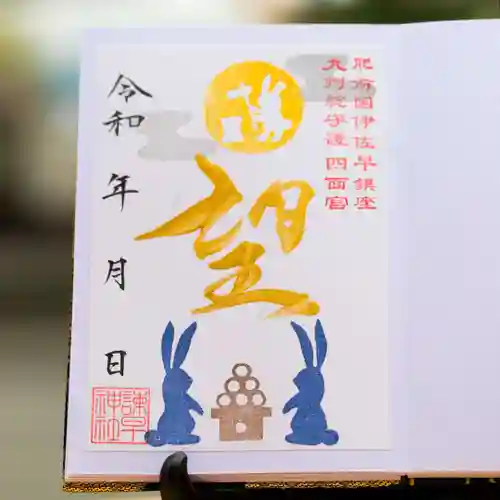 肥前国伊佐早鎮座
九州総守護四面宮
望
令和 年 月 日
諫早神社